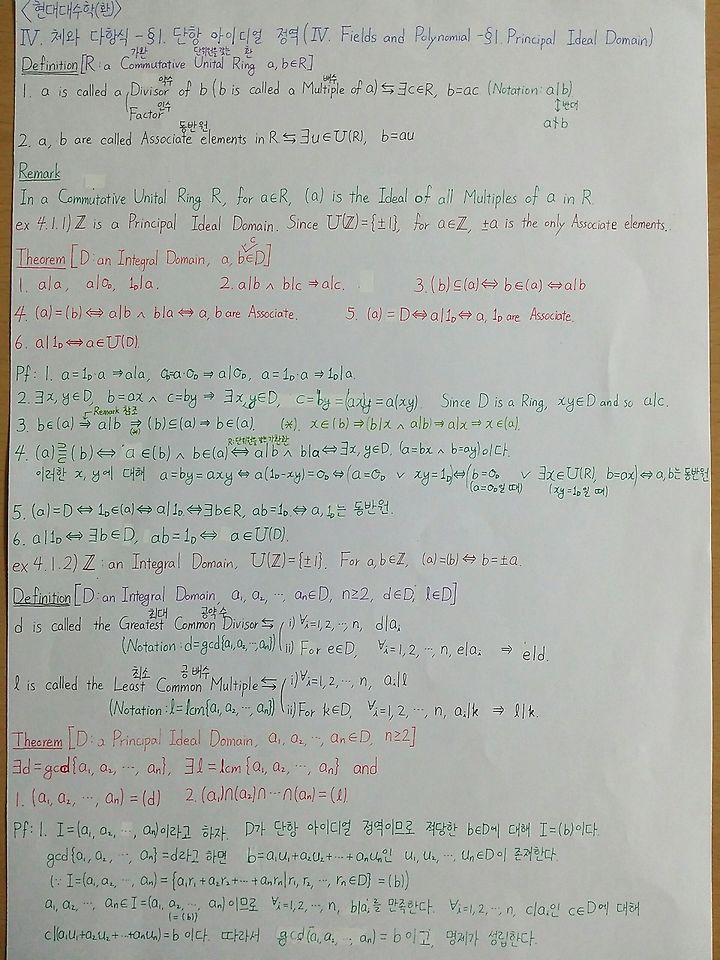 <현대대수학(환)>
Ⅳ. 체와 다항식 -§1. 단항 아이디얼 정역(Ⅳ. Fields and Polynomial -§1. Principal Ideal Domain)
가환 단위원을 갖는 환
Definition[R: a Commutative Unital Ring a, b∈R]
약수 배수
1. a is called a Divisor of b (b is called a Multiple of a) ⇆ ∃c∈R, b=ac (Notation: a|b)
Factor 인수 ↕반대
a∤b
동반원
2. a, b are called Associate elements in R ⇆ ∃u∈U(R), b=au
Remark
In a Commutative Unital Ring R, for a∈R, (a) is the Ideal of all Multiples of a in R.
ex 4.1.1) ℤ is a Principal Ideal Domain. Since U(ℤ)={±1}, for a∈ℤ, ±a is the only Associate elements.
Theorem[D: an Integral Domain, a, b, c∈D]
1. a|a, a|0_D, 1_D|a. 2. a|b ∧ b|c ⇒ a|c. 3. (b)⊆(a) ⇔ b∈(a) ⇔ a|b
4. (a)=(b) ⇔ a|b ∧ b|a ⇔ a, b are Associate. 5. (a)=D ⇔ a|1_D ⇔ a, 1_D are Associate.
6. a|1_D ⇔ a∈U(D).
Pf: 1. a=1_D·a ⇒ a|a, 0_D=a·0_D ⇒ a|0_D, a=1_D·a ⇒ 1_D|a.
2. ∃x, y∈D, b=ax ∧ c=by ⇒ ∃x, y∈D, c=by=(ax)y=a(xy). Since D is a Ring, xy∈D and so a|c.
Remark 참조
3. b∈(a) ⇒ a|b ⇒(*) (b)⊆(a) ⇒ b∈(a). (*). x∈(b) ⇒ (b|x ∧ a|b) ⇒ a|x ⇒ x∈(a).
R: 단위원을 갖는 가환환
4. (a)=(b) ⇔ a∈(b) ∧ b∈(a) ⇔ a|b ∧ b|a ⇔ ∃x, y∈D, (a=bx ∧ b=ay)이다.
이러한 x, y에 대해 a=by=axy ⇔ a(1_D-xy)=0_D ⇔ (a=0_D ∨ xy=1_D) ⇔ (b=0_D ∨ ∃x∈U(R), b=ax) ⇔ a, b는 동반원
(a=0_D일 때) (xy=1_D일 때)
5. (a)=D ⇔ 1_D∈(a) ⇔ a|1_D ⇔ ∃b∈R, ab=1_D ⇔ a, 1_D는 동반원.
6. a|1_D ⇔ ∃b∈D, ab=1_D ⇔ a∈U(D).
ex 4.1.2) ℤ: an Integral Domain, U(ℤ)={±1}. For a, b∈ℤ, (a)=(b) ⇔ b=±a.
Definition[D: an Integral Domain, a₁, a₂, ⋯, aₙ∈D, n≥2, d∈D, l∈D]
최대 공약수
d is called the Greatest Common Divisor ⇆ i) ∀i=1, 2, ⋯, n, d|aᵢ
(Notation: d=gcd{a₁, a₂, ⋯, aₙ}) ii) For e∈D, ∀i=1, 2, ⋯, n, e|aᵢ ⇒ e|d.
최소 공배수
l is called the Least Common Multiple ⇆ i) ∀i=1, 2, ⋯, n, aᵢ|l
(Notation: l=lcm{a₁, a₂, ⋯, aₙ}) ii) For k∈D, ∀i=1, 2, ⋯, n, aᵢ|k ⇒ l|k.
Theorem[D: a Principal Ideal Domain, a₁, a₂, ⋯, aₙ∈D, n≥2]
∃d=gcd{a₁, a₂, ⋯, aₙ}, ∃l=lcm{a₁, a₂, ⋯, aₙ} and
1. (a₁, a₂, ⋯, aₙ)=(d) 2. (a₁)∩(a₂)∩⋯∩(aₙ)=(l).
Pf: 1. I=(a₁, a₂, ⋯, aₙ)이라고 하자. D가 단항 아이디얼 정역이므로 적당한 b∈D에 대해 I=(b)이다.
gcd{a₁, a₂, ⋯, aₙ}=d라고 하면 b=a₁u₁+a₂u₂+⋯+aₙuₙ인 u₁, u₂, ⋯, uₙ∈D이 존재한다.
(∵ I=(a₁, a₂, ⋯, aₙ)={a₁r₁+a₂r₂+⋯+aₙrₙ|r₁, r₂, ⋯, rₙ∈D}=(b))
a₁, a₂, ⋯, aₙ∈I=(a₁, a₂, ⋯, aₙ)이므로 ∀i=1, 2, ⋯, n, b|aᵢ를 만족한다. ∀i=1, 2, ⋯, n, c|aᵢ인 c∈D에 대해
(=(b))
c|(a₁u₁+a₂u₂+⋯+aₙuₙ)=b 이다. 따라서 gcd(a₁, a₂, ⋯, aₙ)=b이고, 명제가 성립한다.